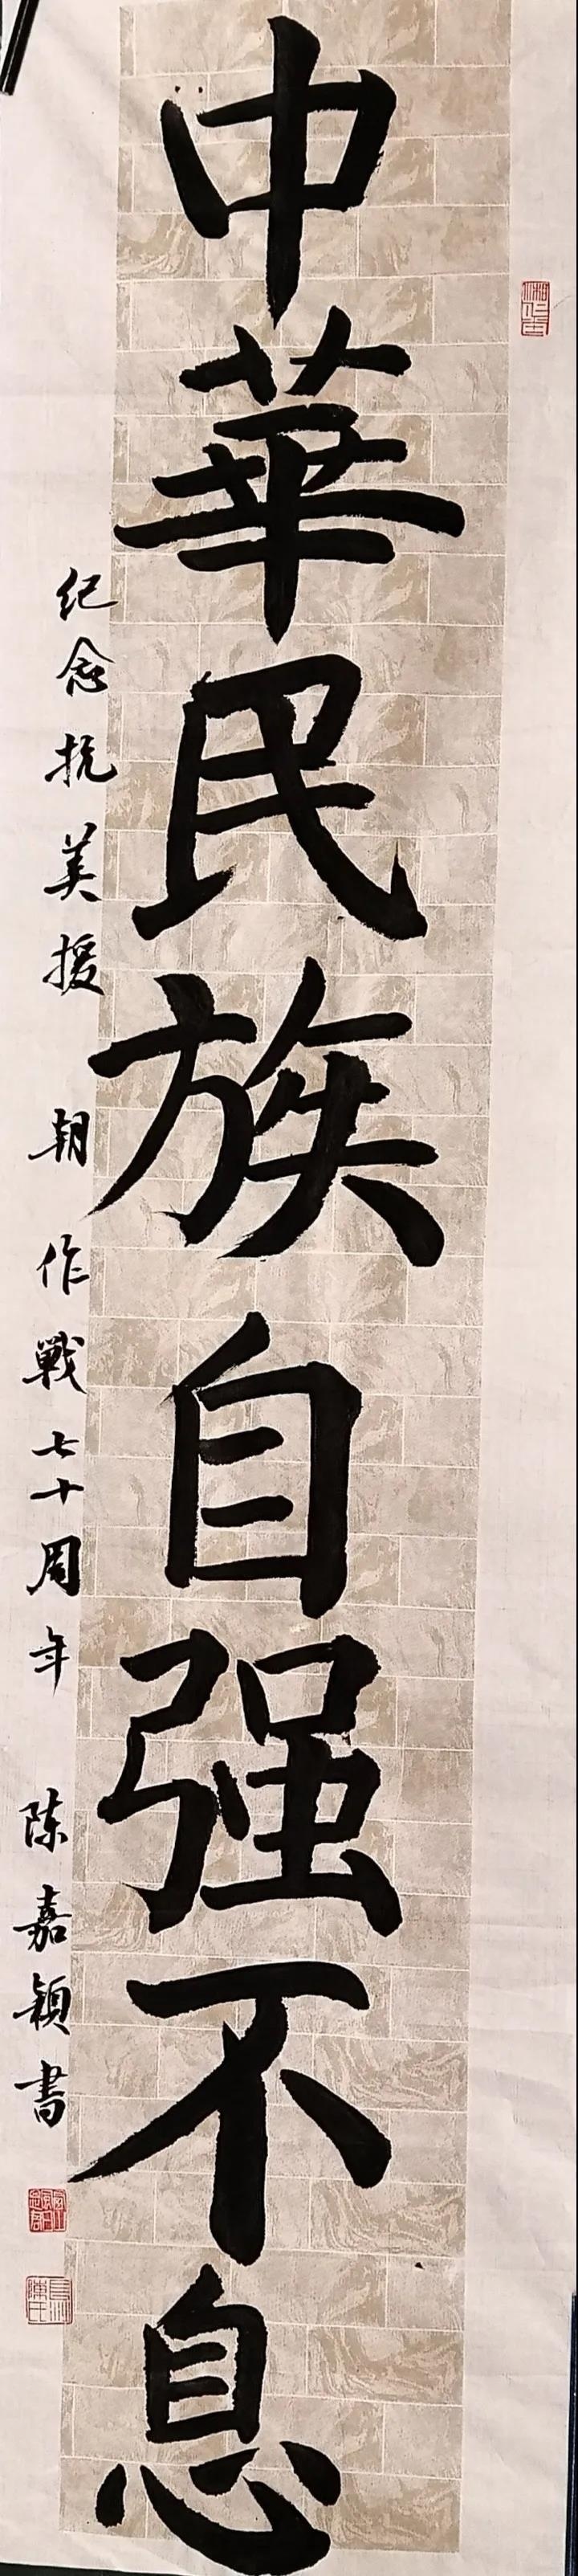 中華民族自强不息
纪念抗美援朝作戰七十周年 陈嘉颖書